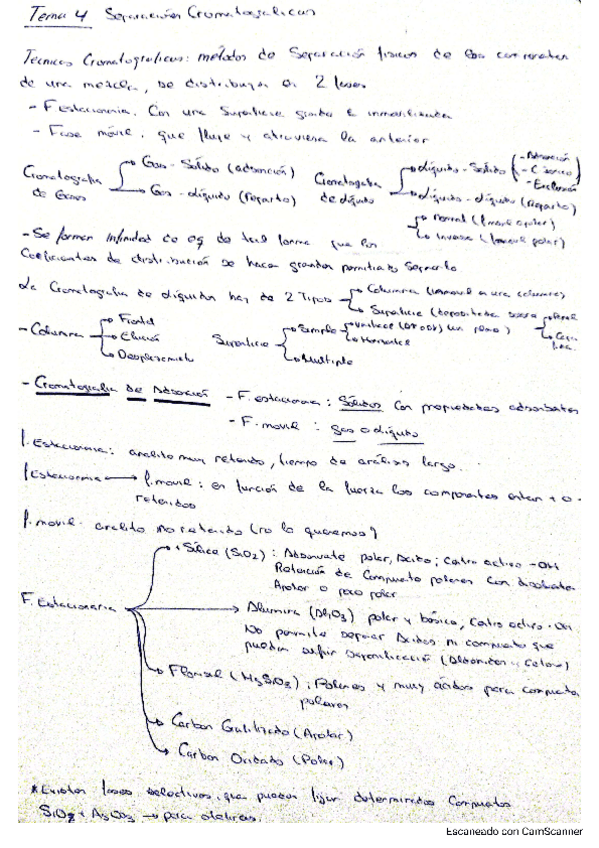 Tema 4 Separaciones Cromatograficas
Técnicas Cromatograficas: métodos de Separación fisicos de los componentes
de una mezcla, se distribuyen en 2 fases
- F estacionaria. Con una Superficie grande e inmovilizada
- Fase móvil. que fluye y atraviesa la anterior
Cromatografia de Gases
Gas - Sólido (adsorción)
Gas - Líquido (Reparto)
Cromatografia de líquido
Líquido - Solido
- Adsorción
- C. iónico
- Exclusión
líquido - líquido (reparto)
Normal (f movil apolar)
Inversa (f movil polar)
- Se forman infinidad de eq de tal forma que los
Coeficientes de distribución se hacen grandes permitiendo Separarlo
La Cromatografia de liquidos hay de 2 Tipos
Columna (inmovil en una columna)
Superficie (depositada sobre
- Columna
Frontal
Elución
Desplazamiento
Superficie
Simple
Horizontal
Multiple
- Cromatografia de Adsorción
- F. estacionaria: Sólidos con propiedades adsorbentes
- F. movil : gas o líquido
f. Estacionaria: analito muy retenido, tiempo de análisis largo.
f Estacionaria ⟷ f. movil: en función de la fuerza los componentes estan + o -
retenidos
f. movil: analito no retenido (no lo queremos)
F. Estacionaria
Sílice (SiO2): Adsorvente polar, ácido; Centro activo -OH
Retención de Compuesto polares con disolvente
Apolar o poco polar
Alumina (Al2O3) polar y básica, Centro activo -OH
No permite separar ácidos ni compuesto que
puedan sufrir saponificación
Florisil (MgSiO3): Polares y muy ácidos para compuestos
polares
Carbon Grafitizado (Apolar)
Carbon Oxidado (Polar)
* Existen fases selectivas, que pueden ligar determinados Compuestos
SiO2 + AgCO3 → para olefinas.
Escaneado con CamScanner